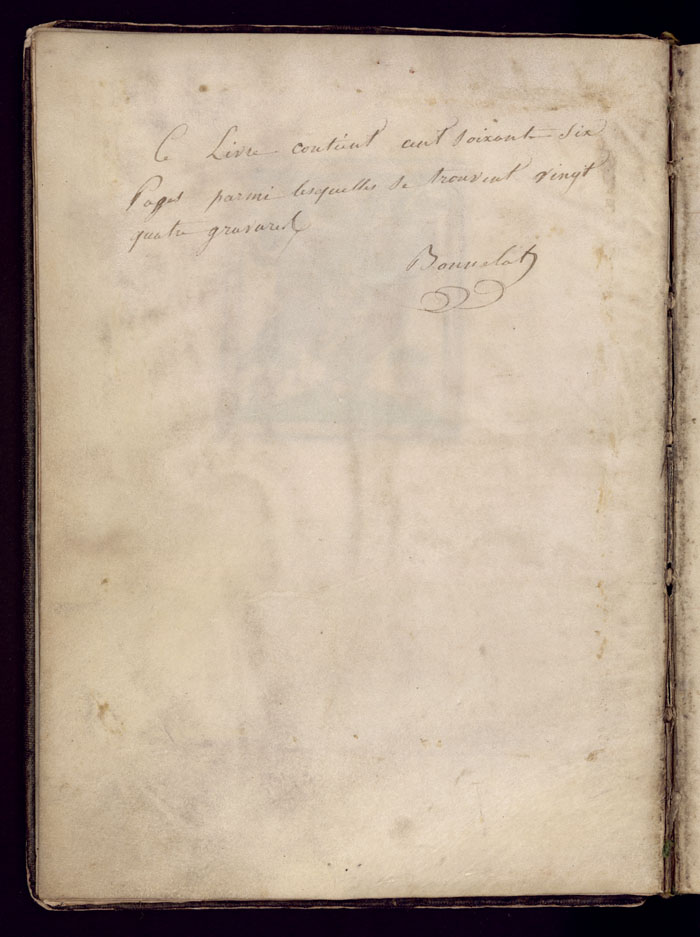 Ce Livre contient cent soixante six
Pages parmi lesquelles se trouvent vingt
quatre gravures
Bonnelat